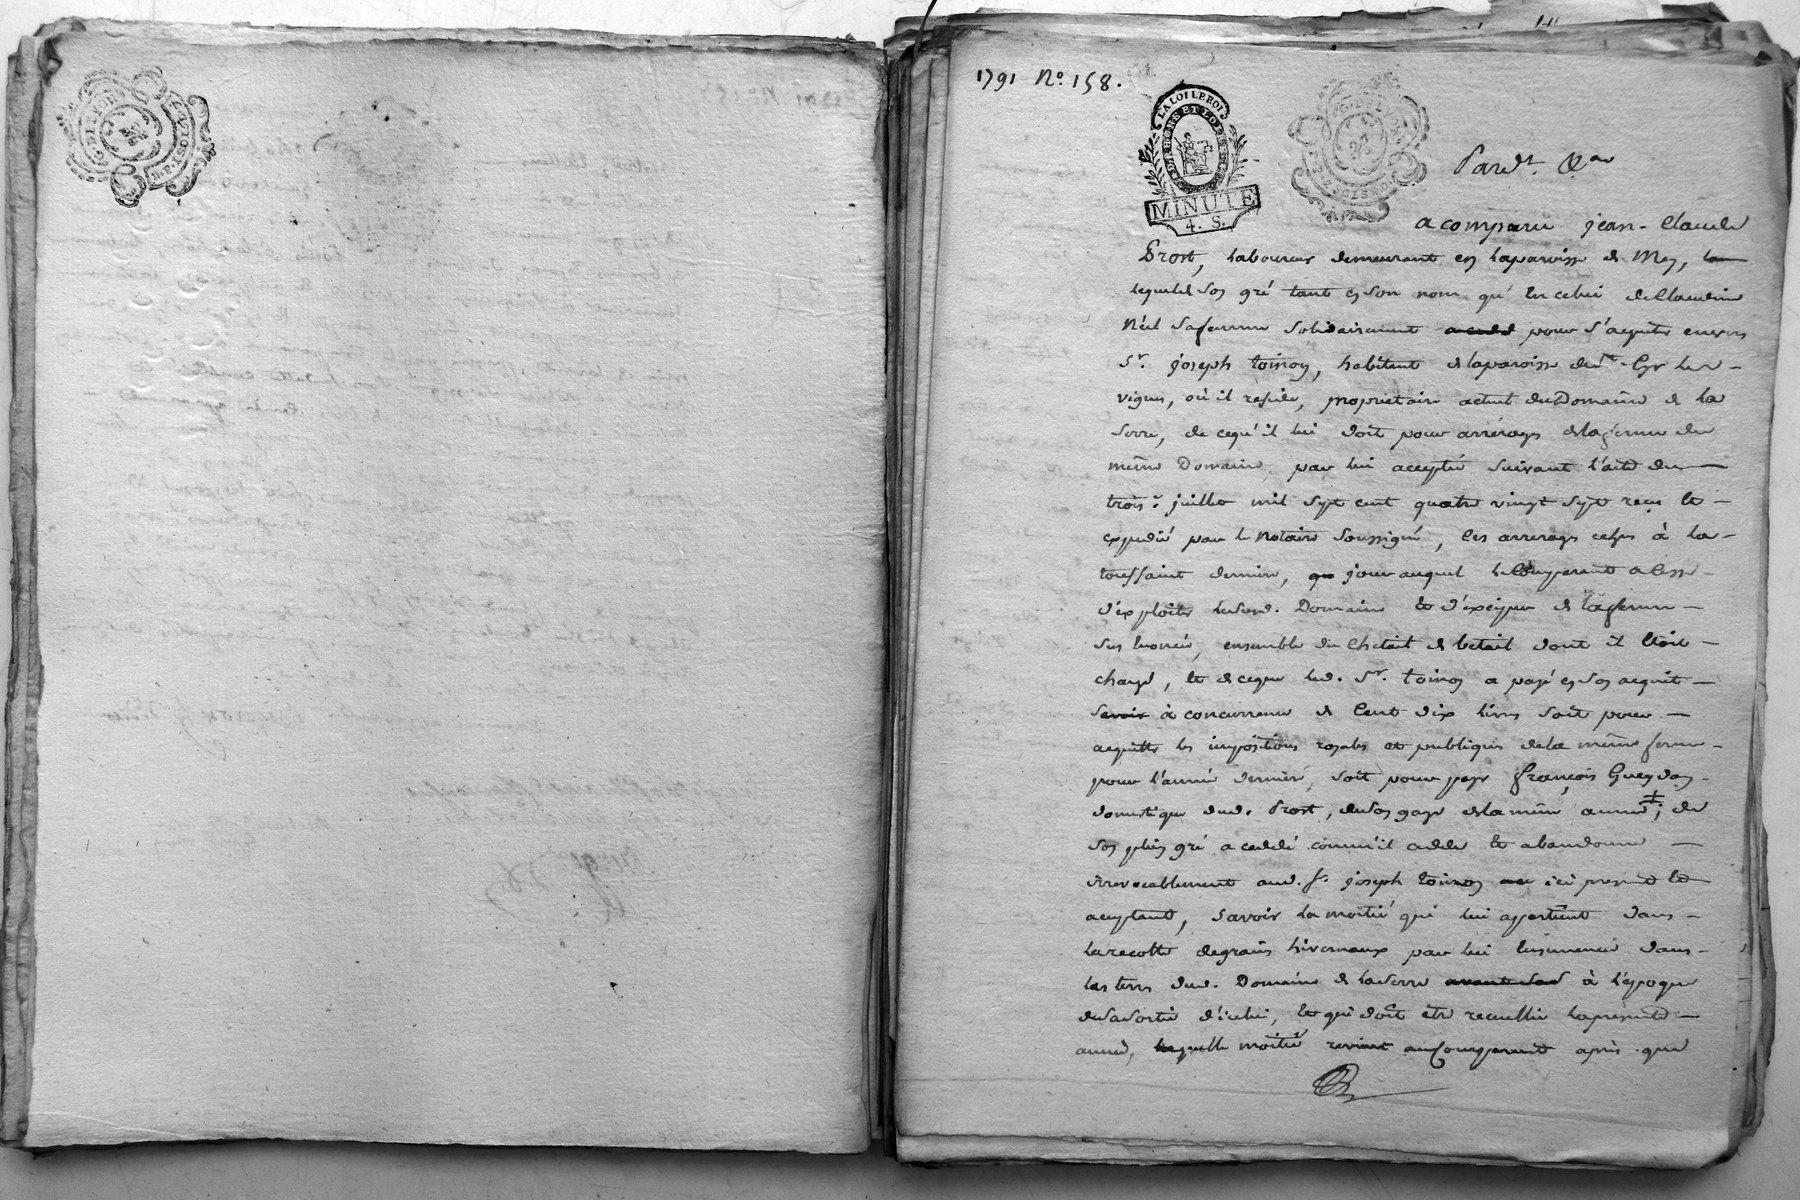 1791 N.° 158.
LA LOI LE ROI
MINUTE
4. S.
Pard.t &a
a comparu jean-Claude
Prost, laboureur demeurant en laparoisse de Mey,
lequel de son gré tant en son nom qu'en celui de Claudine
sa femme solidairement pour s'aquiter envers
S.r joseph toinon, habitant de laparoisse de S.t Cyr les
vignes, où il reside, proprietaire actuel du Domaine de la
Serre, de ce qu'il lui doit pour arrérages de la ferme du
même Domaine par lui acceptée suivant l'acte du
trois.e juillet mil sept cent quatre vingt sept recu et
expedié par le Notaire Soussigné, les arrerages echus à la
toussaint derniere, jour auquel le Comparant a cessé
d'exploiter led. Domaine et d'exciper de la ferme
sus énoncée, ensemble du Chetail de betail dont il étoit
chargé, et de ceque led. S.r toinon a payé en son acquit
à concurrence de Cent dix livres soit pour
acquitter les impositions royales et publiques de la même ferme
pour l'année derniere, soit pour payer françois Gueydon
domestique dud. Prost, de son gage de la même année ; de
son plein gré a ceddé comm'il cedde et abandonne
irrevocablement aud. S.r joseph toinon ici present et
acceptant, savoir la moitié qui lui appartient dans
la recolte de grains hivernaux par lui ensemencés dans
les terres dud. Domaine de la Serre à l'époque
de sa sortie d'icelui, et qui doit être recueillie la presente
année, laquelle moitié revient au Comparant après que